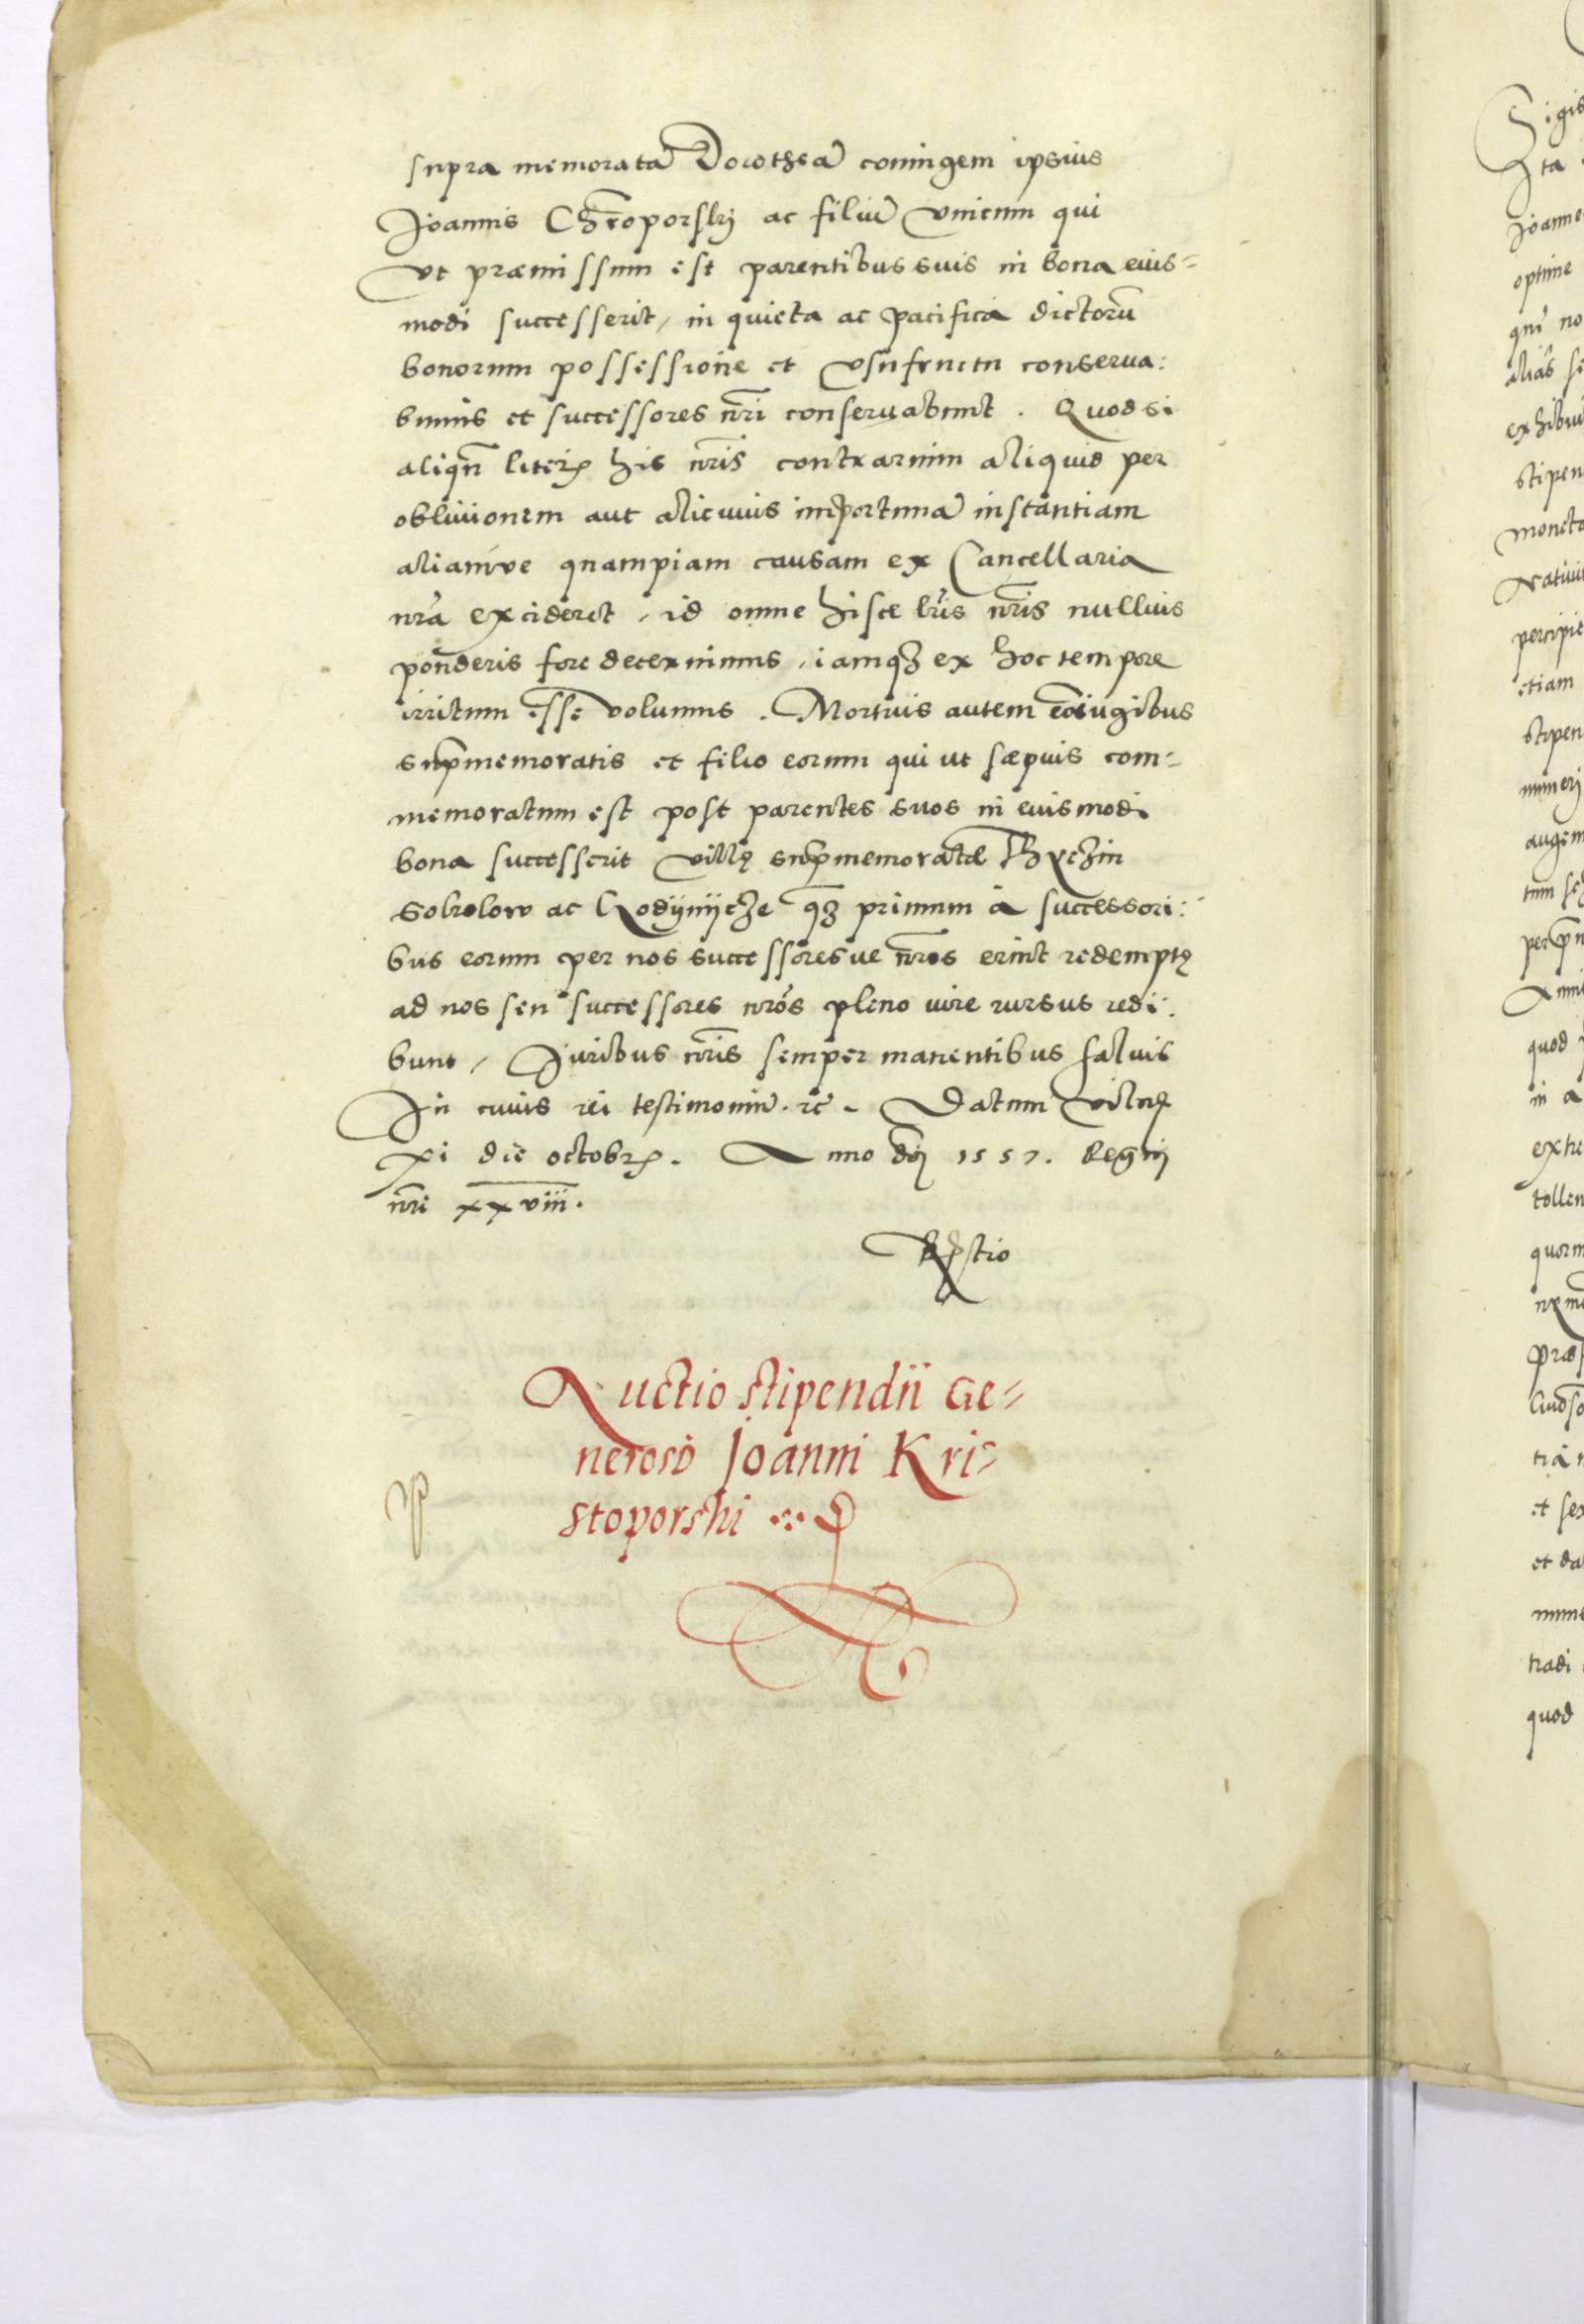 supra memoratā Dorotheā coniugem ipsius
Joannis Chrōporskj ac filiū vnicum qui
vt præmissum est parentibus suis in bona euis=
modi successerit, in quieta ac pacifica dictorū
bonorum possessione et vsufructu conserua:
bimus et successores nr̄i conseruabunt. Quod si
his nr̄is contrarium aliquid per
obliuionem aut alicuius importunā instantiam
aliamve quampiam causam ex Cancellaria
nr̄a excideret, id omne hisce lr̄is nr̄is nullius
ponderis fore decernimus, iamqȝ ex hoc tempore
irritum esse volumus. Mortuis autem cōiugibus
memoratis et filio eorum qui ut sæpius com=
memoratum est post parentes suos in euismodi
bona successerit villę supmemoratæ Brezin
Sokolow ac primum à successori:
bus eorum per nos successoresue nr̄os erint redemptę
ad nos seu successores nr̄os pleno iure rursus redi:
bunt, Juribus nr̄is semper manentibus saluis
In cuius rei testimoniū. rc̄. Datum Vilnę
xi die octobr. Anno dn̄j 1557. Regnj
nr̄i xxviii.
Auctio stipendii Ge=
neroso Joanni Kri=
stoporski
Sigis
ta
Joanne
optime
qui no
alias se
exhibui
stipen
moneta
Natiuit
percipie
etiam
stipen
numerj
augem
tum
quod
in a
extre
tollen
quorm
præs
et sex
et da
tradi
quod